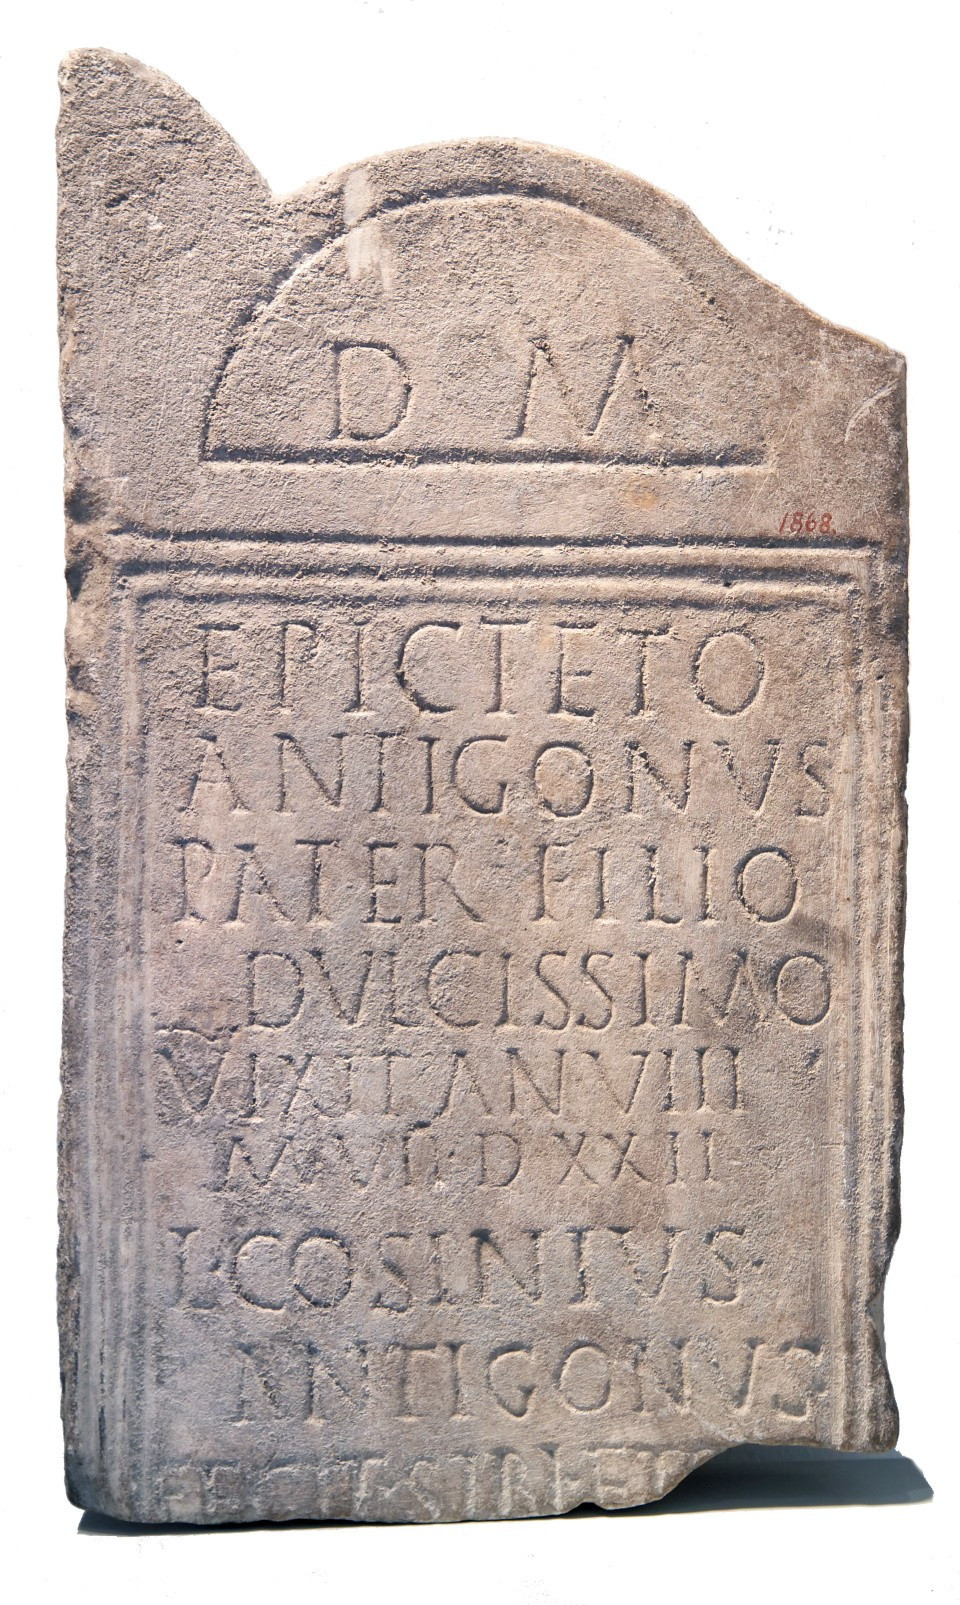 D M
1868
EPICTETO
ANTIGONVS
PATER · FILIO
DVLCISSIMO
VIXIT AN VIII
M · VII · D XXII
L · COSINIVS ·
ANTIGONVS
FECIT · SIBI · ET